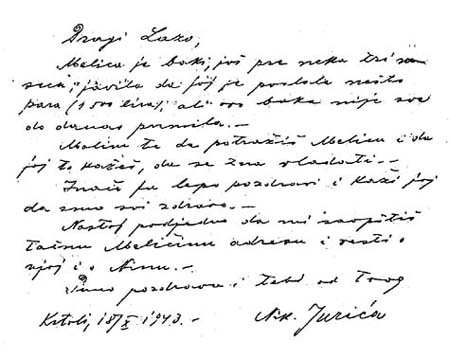 Dragi Lazo,
Melica je baki, još pre neka tri me
seca, javila da joj je poslala nešto
para (1500 lira), ali ovo baka nije sve
do danas primila.—
Molim te da potražiš Melicu i da
joj to kažeš, da se zna vladati.—
Inače ju lepo pozdravi i kaži joj
da smo svi zdravo.—
Nastoj podjedno da mi saopštiš
tačnu Meličinu adresu i vesti o
njoj i o Ninu.—
Puno pozdrava i tebi od tvog
Krtoli, 18/X 1943.—
Nik. Jurića